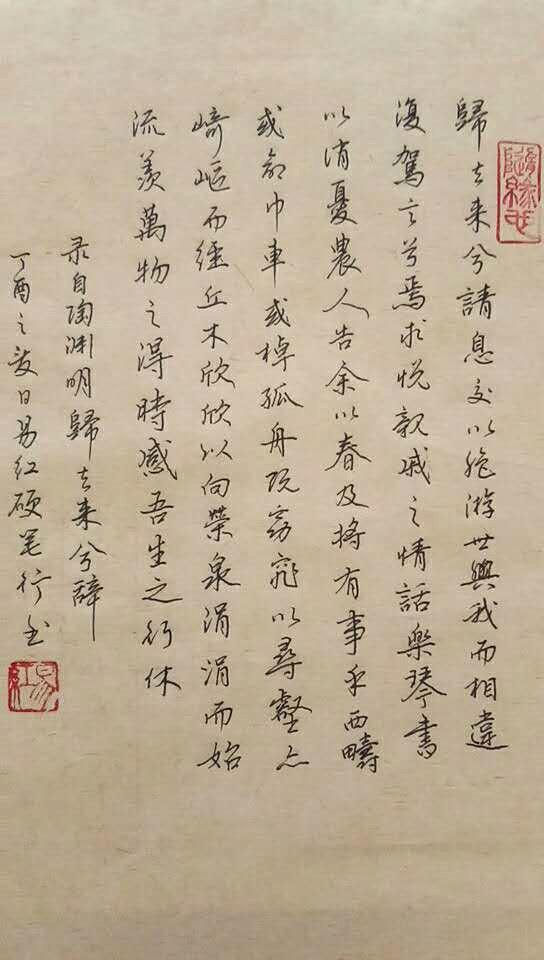 歸去来兮請息交以絶游世與我而相違
復駕言兮焉求悦親戚之情話樂琴書
以消憂農人告余以春及將有事乎西疇
或命巾車或棹孤舟既窈窕以尋壑亦
崎嶇而經丘木欣欣以向榮泉涓涓而始
流羨萬物之得時感吾生之行休
录自陶渊明歸去来兮辭
丁酉之夏日易红硬笔行书
隨緣
易红